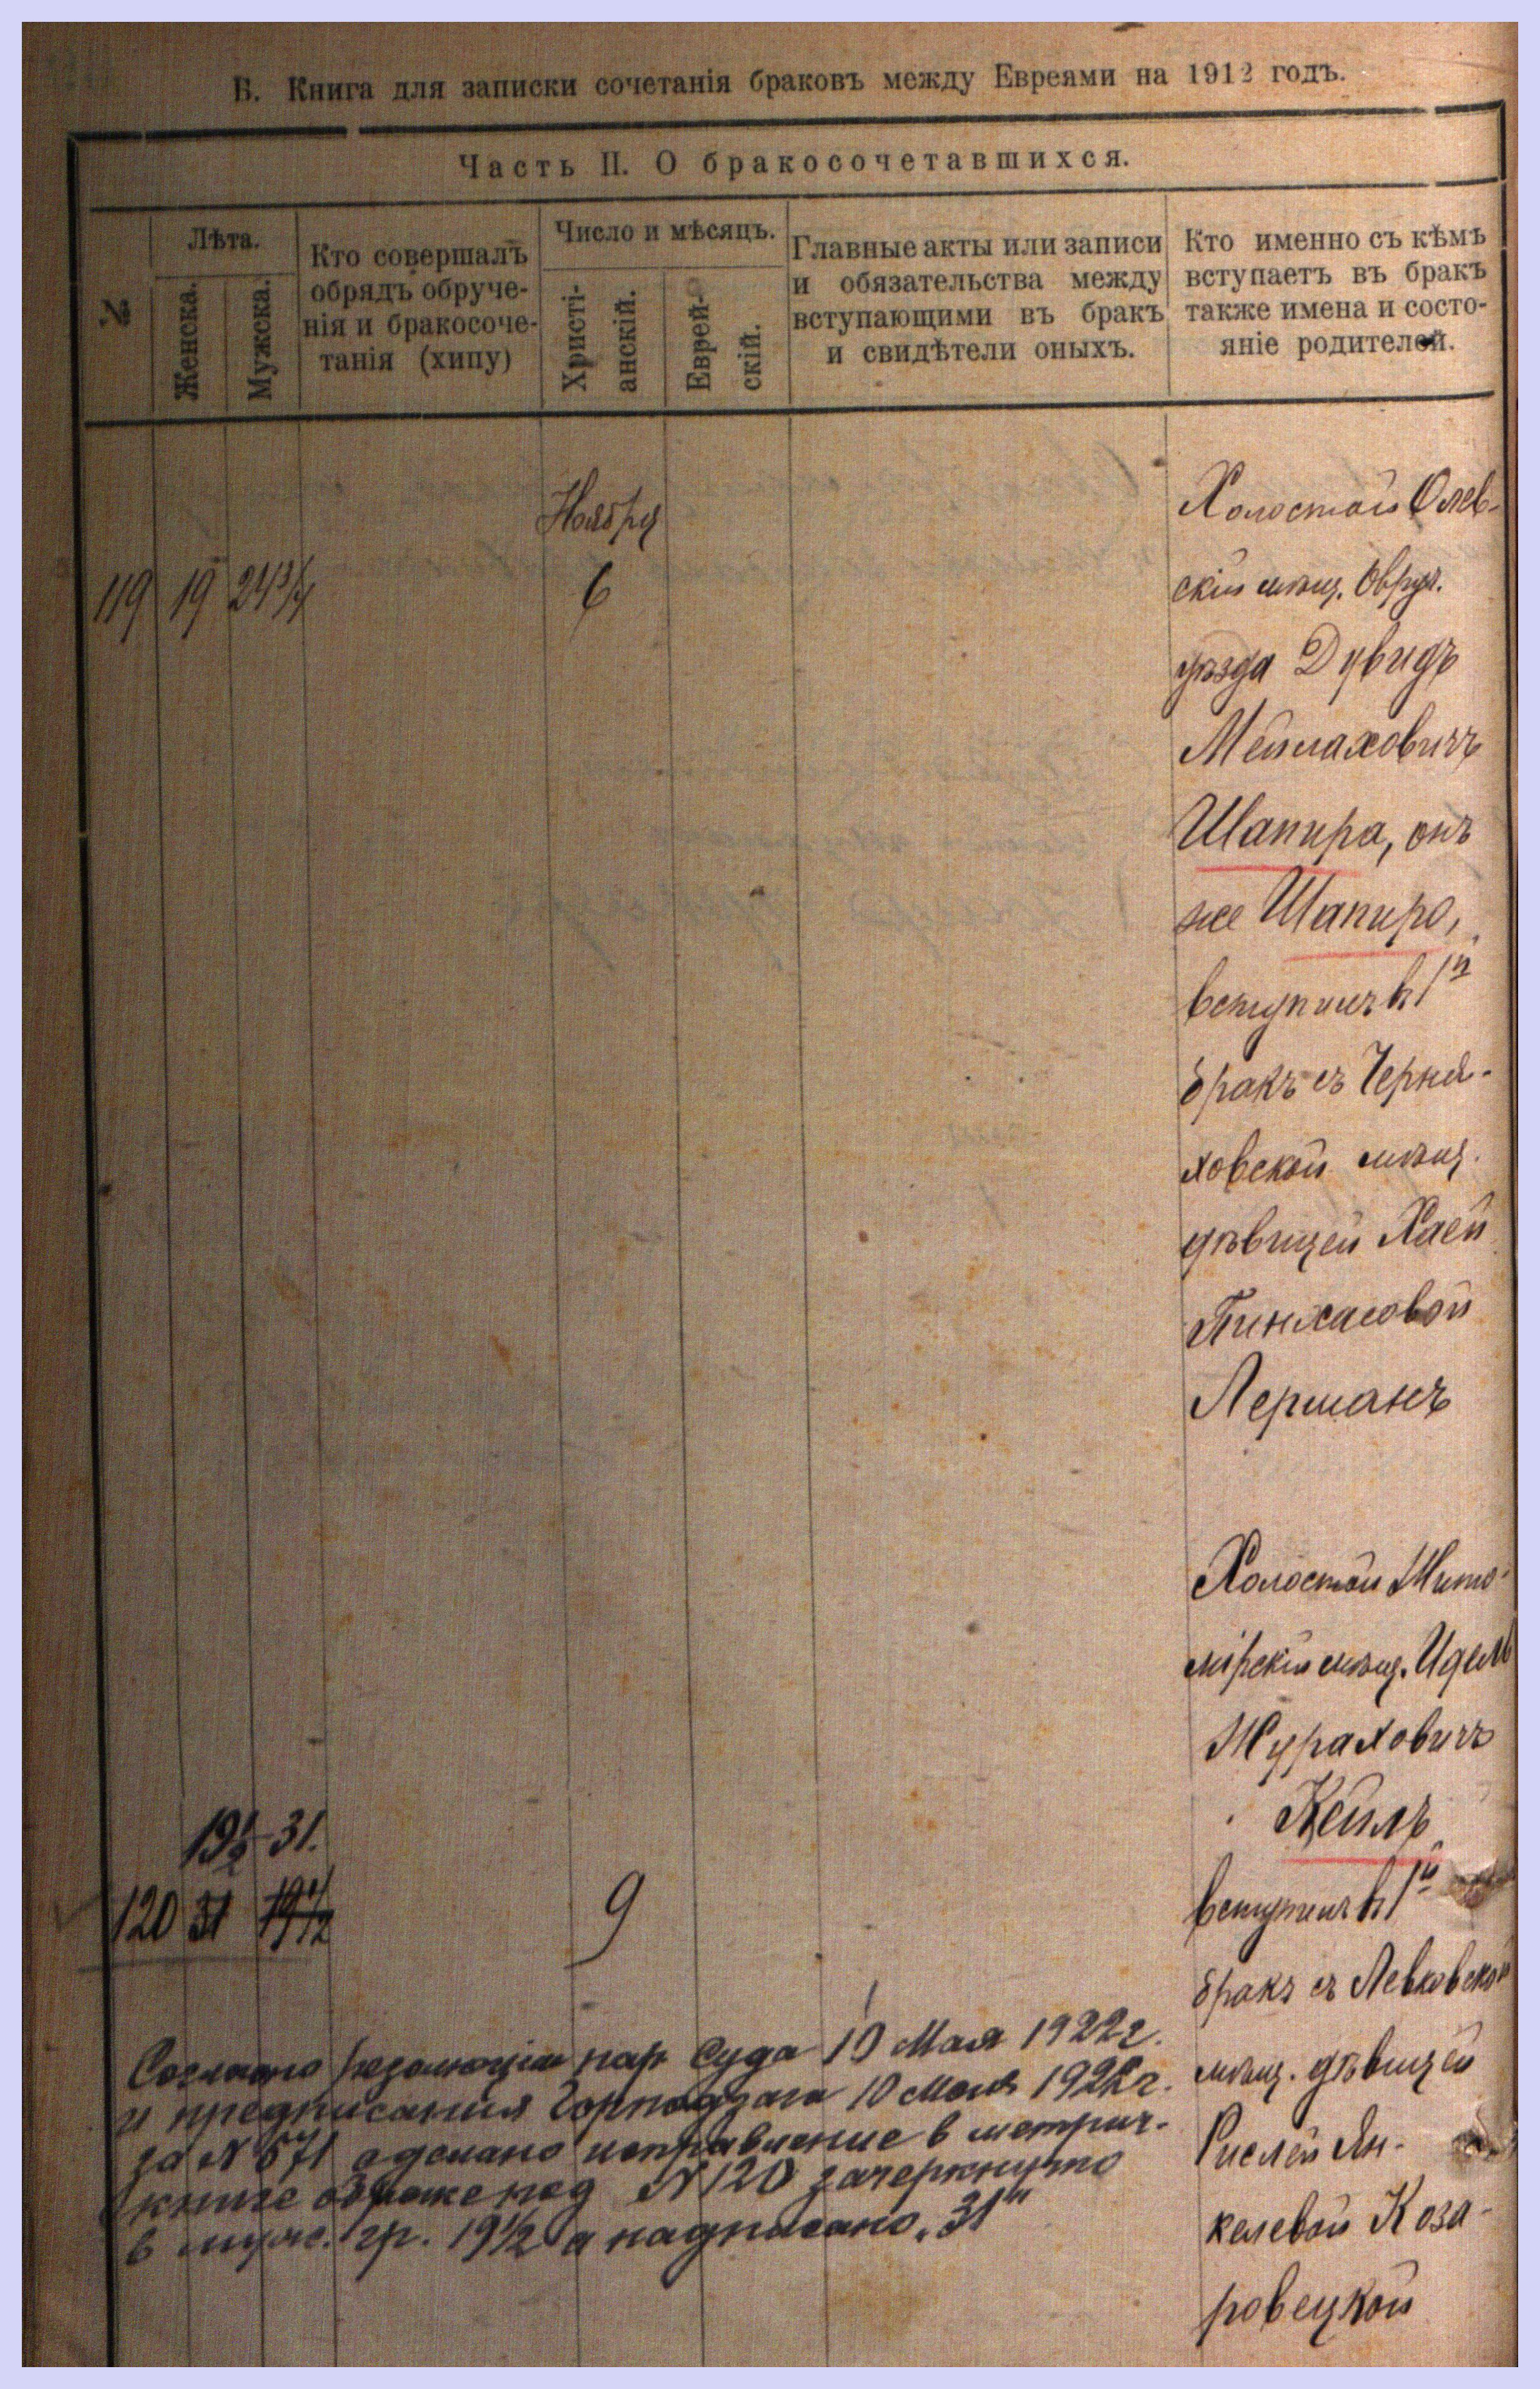 Б. Книга для записки сочетанія браковъ между Евреями на 1912 годъ.
Часть II. О бракосочетавшихся.
№
Лѣта.
Женска.
Мужска.
Кто совершалъ
обрядъ обруче-
нія и бракосоче-
танія (хипу)
Число и мѣсяцъ.
Христі-
анскій.
Еврей-
скій.
Главные акты или записи
и обязательства между
вступающими въ бракъ
и свидѣтели оныхъ.
Кто именно съ кѣмъ
вступаетъ въ бракъ
также имена и состо-
яніе родителей.
Ноября
119 19 24 3/4 6
Холостой Олев-
скій мѣщ. Овруч.
уѣзда Дувидъ
Мейлаховичъ
Шапира, онъ
же Шапиро,
вступилъ въ 1й
бракъ съ Черня-
ховской мѣщ.
дѣвицей Хаей
Пинхасовой
Лерманъ
Холостой Жито-
мірскій мѣщ. Идель
Журахович
Кейлъ
19 1/2 31.
120 31 19 1/2 9
вступилъ въ 1й
бракъ съ Левковской
мѣщ. дѣвицей
Рислей Ян-
келевой Коза-
ровецкой
Согласно резолюціи нар Суда 10 Мая 1922г.
и предписания Горподзага 10 Мая 1922г.
за № 571 сделано исправление в метрич.
книге о браке под № 120 зачеркнуто
в муж. гр. 19 1/2 а надписано „31"